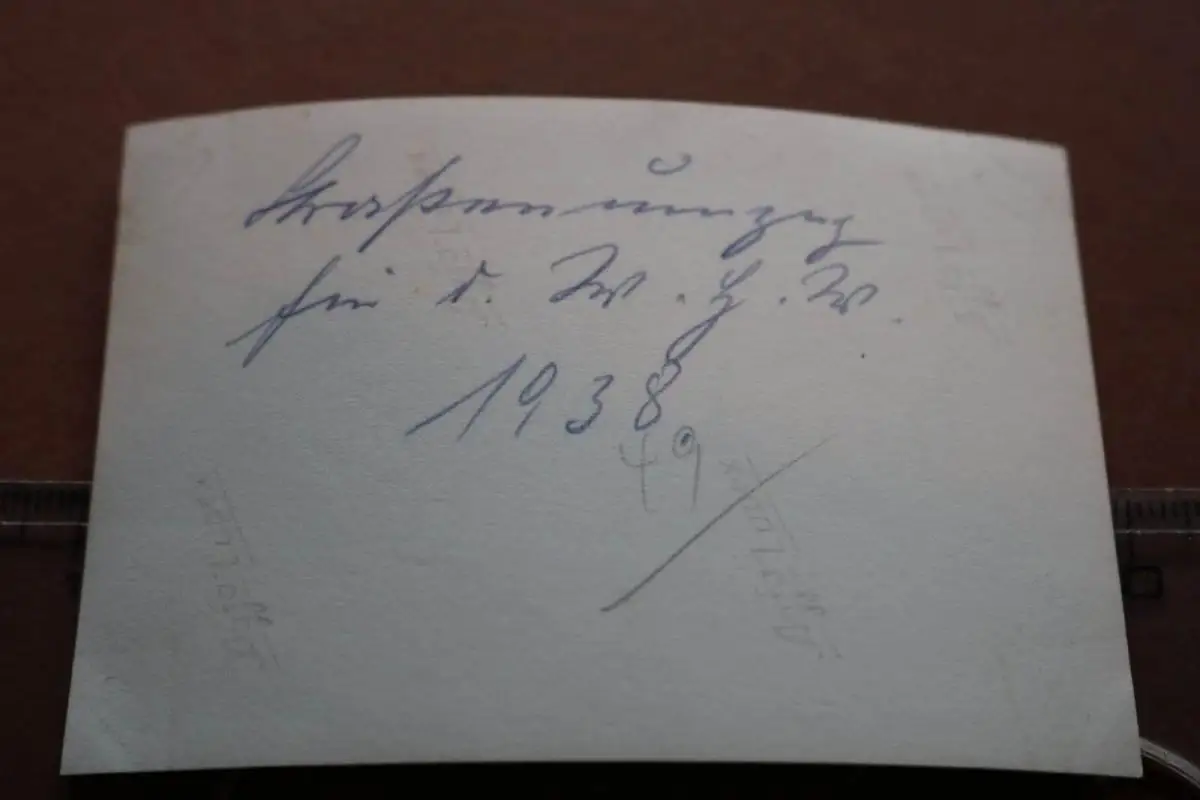 Straßenumzug
für d. W. H. W.
1938
49